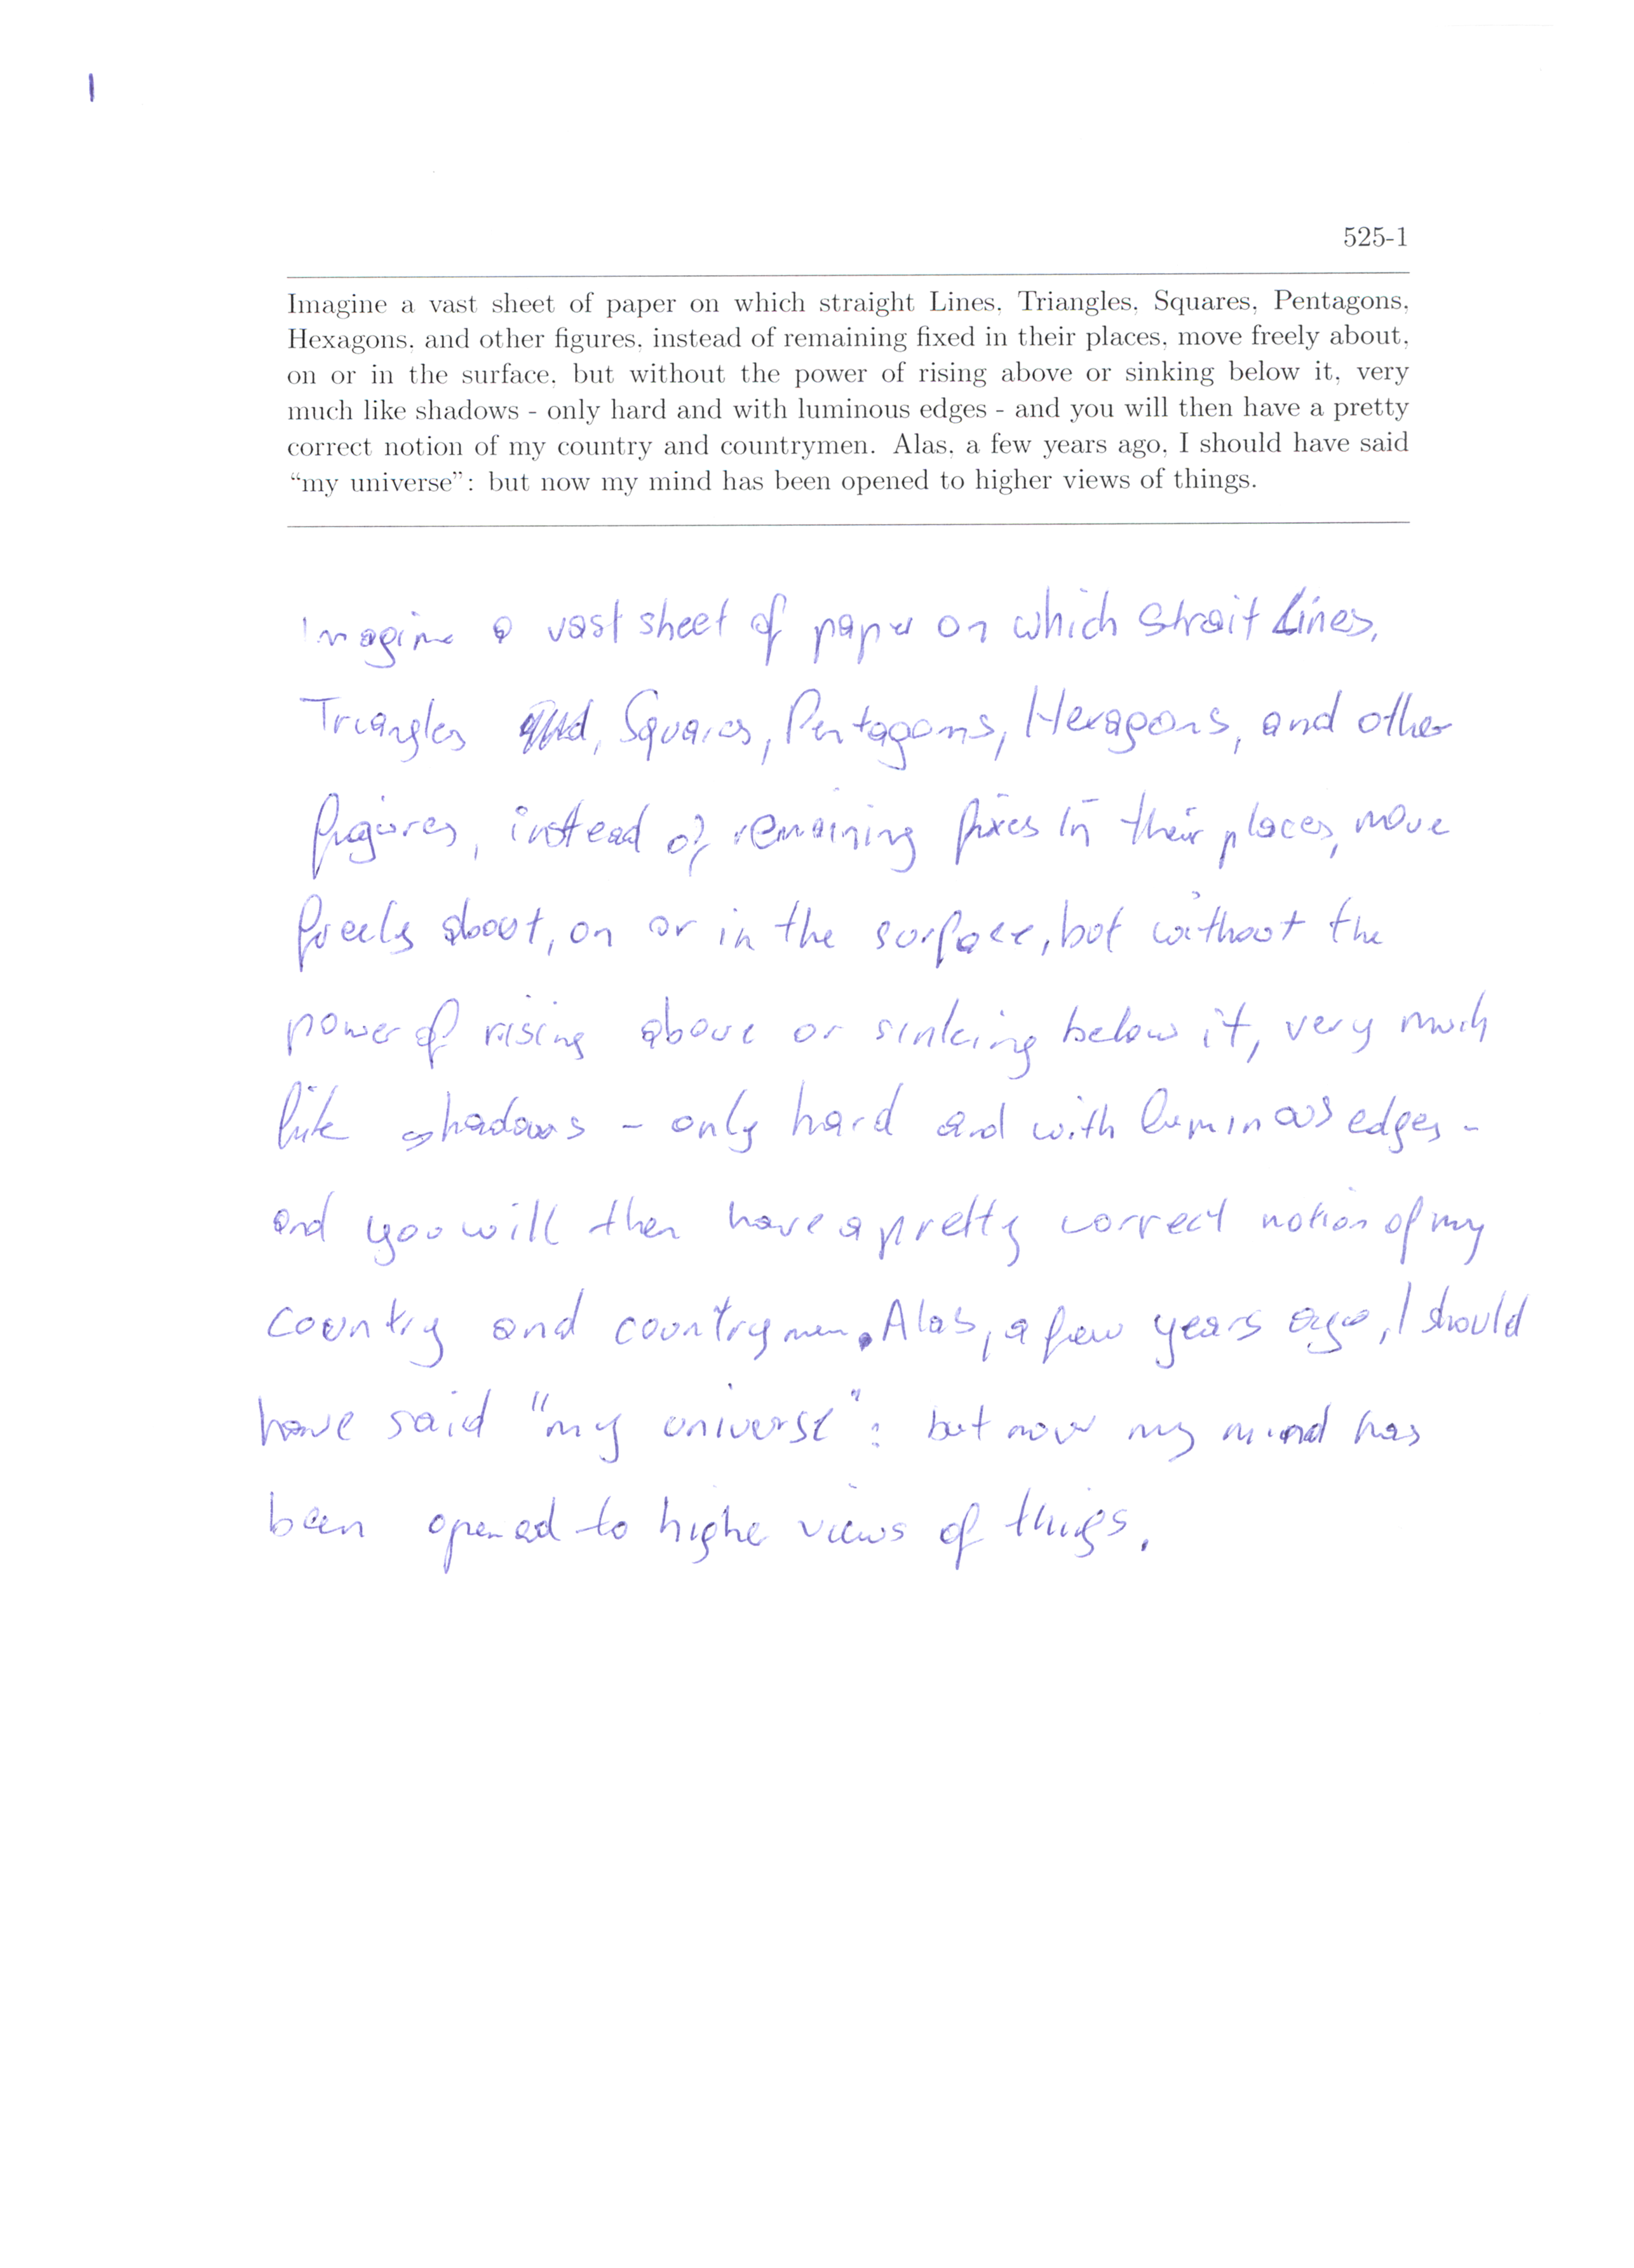 1
525-1
Imagine a vast sheet of paper on which straight Lines, Triangles, Squares, Pentagons,
Hexagons, and other figures, instead of remaining fixed in their places, move freely about,
on or in the surface, but without the power of rising above or sinking below it, very
much like shadows - only hard and with luminous edges - and you will then have a pretty
correct notion of my country and countrymen. Alas, a few years ago, I should have said
“my universe”: but now my mind has been opened to higher views of things.
Imagine a vast sheet of paper on which strait Lines,
Triangles , Squares, Pentagons, Hexagons, and other
figures, instead of remaining fixes in their places, move
freely about, on or in the surface, but without the
power of rising above or sinking below it, very much
like shadows - only hard and with luminous edges -
and you will then have a pretty correct notion of my
country and countrymen. Alas, a few years ago, I should
have said "my universe": but now my mind has
been opened to higher views of things.